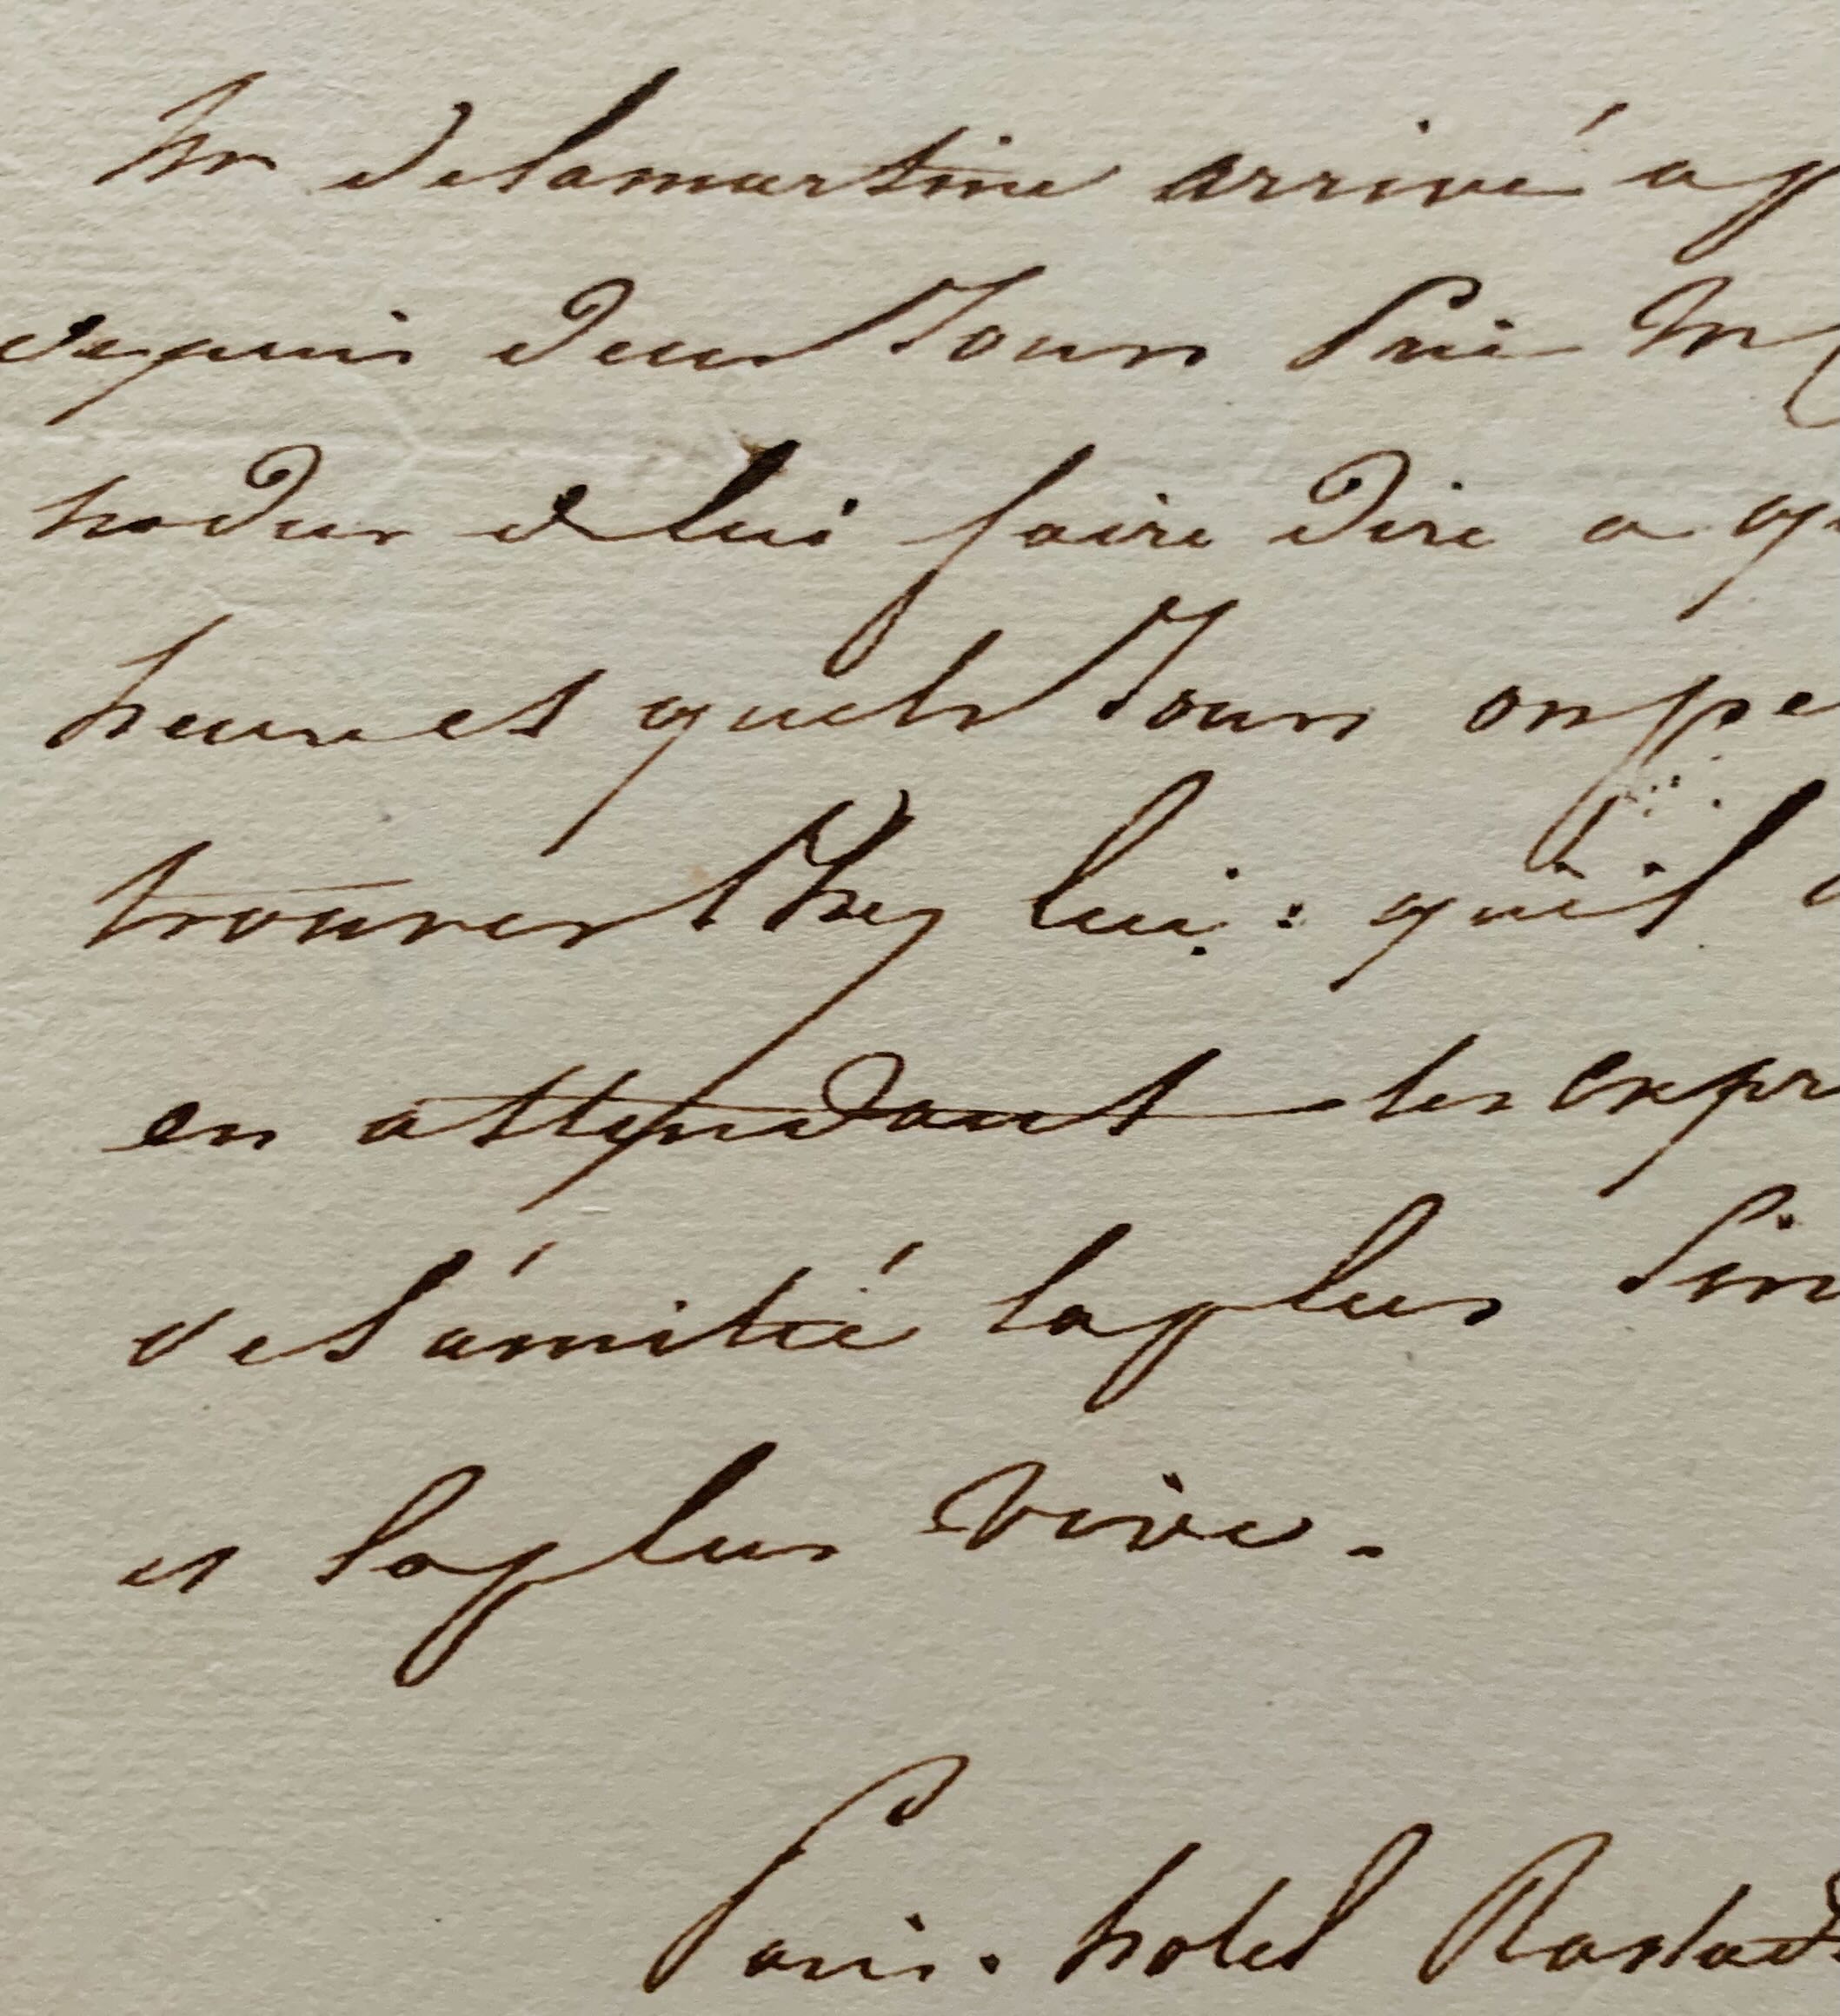 Mr Delamartine arrivé a p
depuis deux Jours Prie M
nodier de lui faire dire a q
heures et quels Jours on pe
trouver chez lui : qu'il
en attendant les expr
de l'amitié la plus sin
et la plus vive.
Paris. hotel Rastad